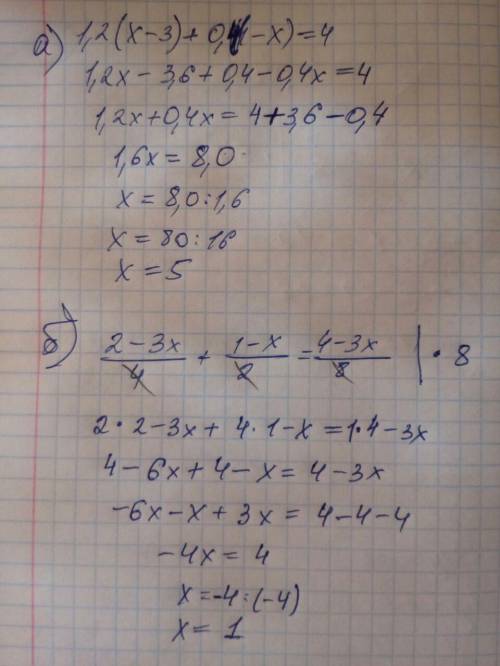 а) 1,2(x-3)+0,4(1-x)=4
1,2x-3,6+0,4-0,4x=4
1,2x+0,4x=4+3,6-0,4
1,6x=8,0
x=8,0:1,6
x=80:16
x=5
б) (2-3x)/4 + (1-x)/2 = (4-3x)/8 | • 8
2•2-3x+4•1-x=1•4-3x
4-6x+4-x=4-3x
-6x-x+3x=4-4-4
-4x=4
x=-4:(-4)
x=1